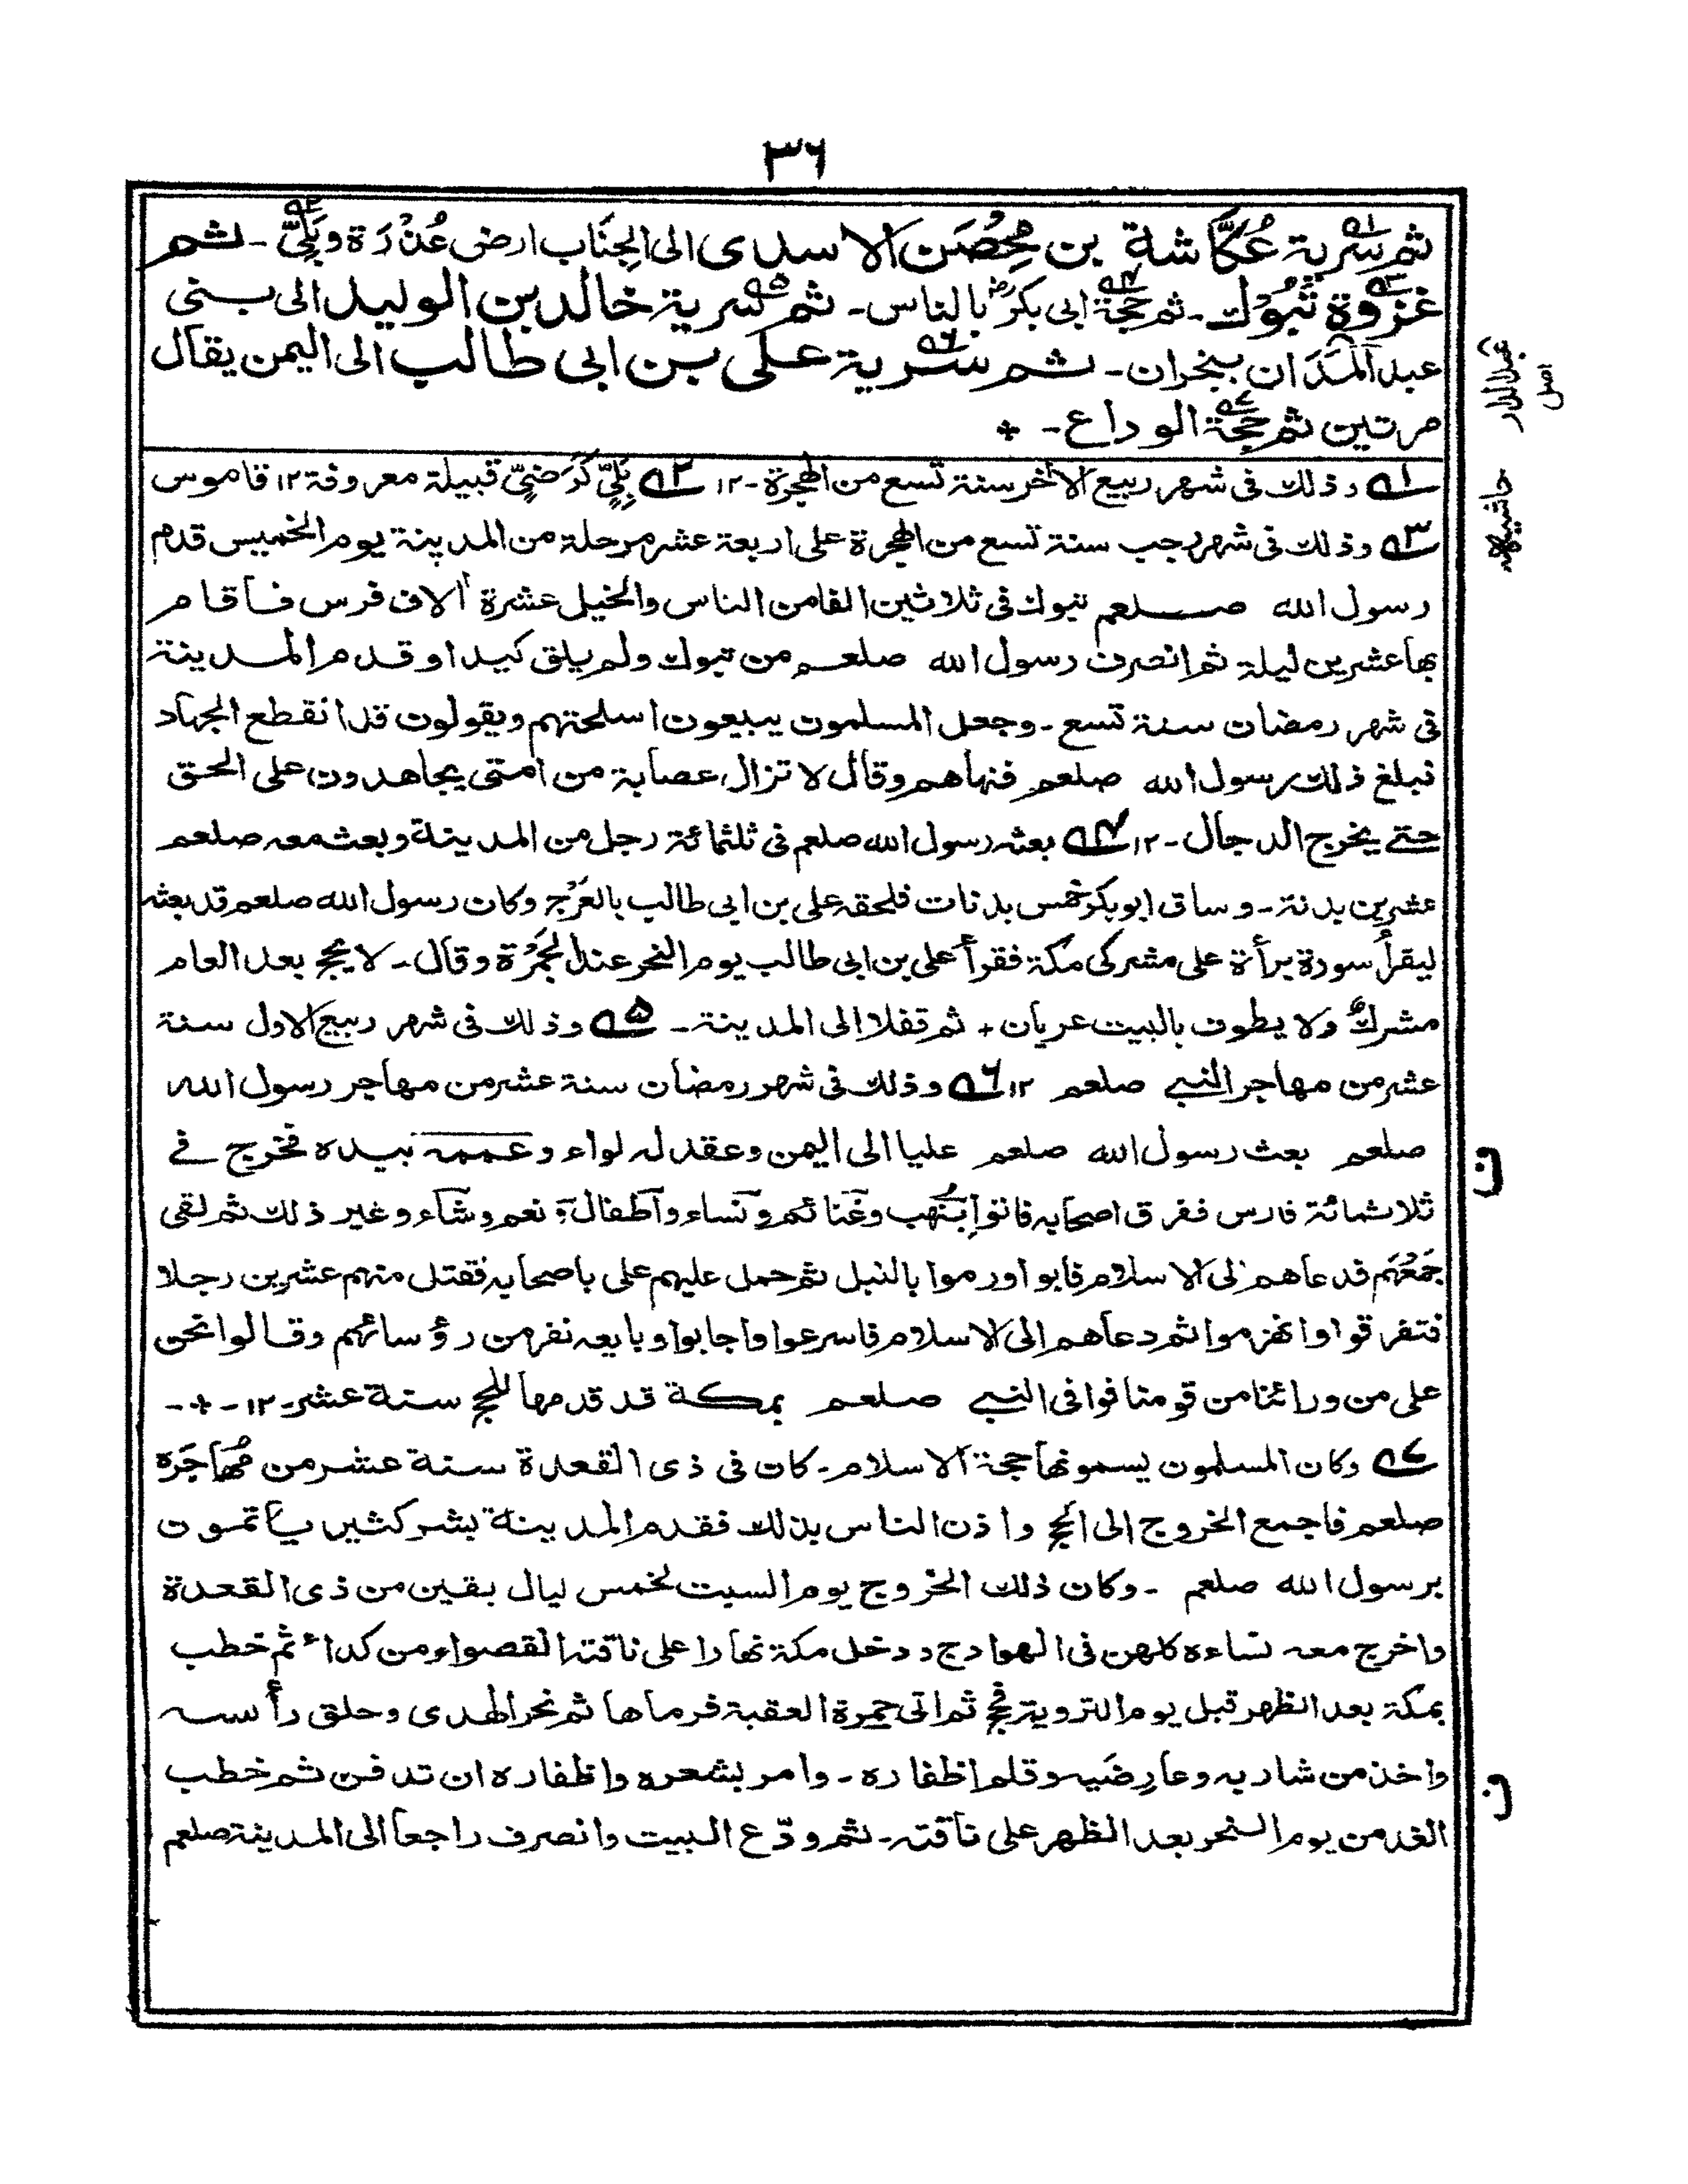 ٣٦
ثم سرية عُكَّاشة بن مِحْصَن الاسدى الى الجِنَاب ارض عُذْرَة وبَلِىّ ـ ثم
غزوة تبُوْك ـ ثم حجة ابى بكرؓ بالناس ـ ثم سرية خالد بن الوليد الى بنى
عبد المَدَان بنجران ـ ثم سرية على بن ابى طالب الى اليمن يقال
مرتين ثم حجة الوداع ـ +
عبد الدار
اصل
حاشیه
١ه وذلك فى شهر ربيع الآخر سنة تسع من الهجرة ـ ١٢ ٢ه بَلِىّ كَرَضِىّ قبيلة معروفة ١٢ قاموس
٣ه وذلك فى شهر رجب سنة تسع من الهجرة على اربعة عشر مرحلة من المدينة يوم الخميس قدم
رسول الله صلعم تبوك فى ثلاثين الفا من الناس والخيل عشرة آلاف فرس فاقام
بها عشرين ليلة ثم انصرف رسول الله صلعم من تبوك ولم يلق كيدا وقدم المدينة
فى شهر رمضان سنة تسع ـ وجعل المسلمون يبيعون اسلحتهم ويقولون قد انقطع الجهاد
فبلغ ذلك رسول الله صلعم فنهاهم وقال لا تزال عصابة من امتى يجاهدون على الحق
حتے يخرج الدجال ـ ١٢ ٤ه بعثه رسول الله صلعم فى ثلثمائة رجل من المدينة وبعث معه صلعم
عشرين بدنة ـ وساق ابو بكر خمس بدنات فلحقه على بن ابى طالب بالعَرْج وكان رسول الله صلعم قد بعثه
ليقرأ سورة برأة على مشركى مكة فقرأ على بن ابى طالب يوم النحر عند الجَمْرة وقال ـ لا يحج بعد العام
مشركٌ ولا يطوف بالبيت عريان + ثم قفلا الى المدينة ـ ٥ه وذلك فى شهر ربيع الاول سنة
عشر من مهاجر النبے صلعم ١٢ ٦ه وذلك فى شهر رمضان سنة عشر من مهاجر رسول الله
صلعم بعث رسول الله صلعم عليا الى اليمن وعقد له لواء وعممه بيده فخرج فے
ثلاثمائة فارس ففرق اصحابه فاتوا بنَهب وغنائم ونساء واطفال و نعم وشاء وغير ذلك ثم لقى
جَمْعَهم فدعاهم الى الاسلام فابوا ورموا بالنبل ثم حمل عليهم على باصحابه فقتل منهم عشرين رجلا
فتفرقوا وانهزموا ثم دعاهم الى الاسلام فاسرعوا واجابوا وبايعه نفر من رؤسائهم وقالوا نحن
على من ورائنا من قومنا فوافى النبے صلعم بمكة قد قدمها للحج سنة عشر ـ ١٢ ـ + ـ
٧ه وكان المسلمون يسمونها حجة الاسلام ـ كان فى ذى القعدة سنة عشر من مُهاجَره
صلعم فاجمع الخروج الى الحج واذن الناس بذلك فقدم المدينة بشر كثير ياتمون
برسول الله صلعم ـ وكان ذلك الخروج يوم السبت لخمس ليال بقين من ذى القعدة
واخرج معه نساءه كلهن فى الهوادج ودخل مكة نهارا على ناقته القصواء من كداء ثم خطب
بمكة بعد الظهر قبل يوم التروية فحج ثم اتى جمرة العقبة فرماها ثم نحر الهدى وحلق رأسه
واخذ من شاربه وعارِضَيه وقلم اظفاره ـ وامر بشعره واظفاره ان تدفن ثم خطب
الغد من يوم النحر بعد الظهر على ناقته ـ ثم ودّع البيت وانصرف راجعا الى المدينة صلعم
ف
ف